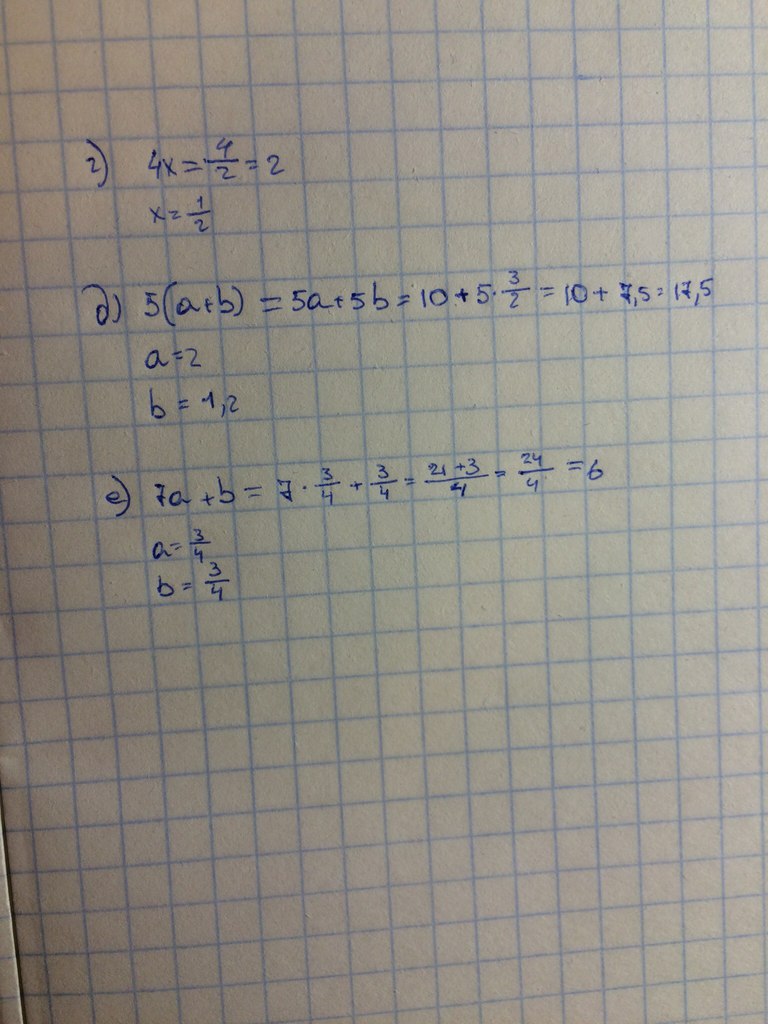 г) 4x = 4/2 = 2
x = 1/2
д) 5(a+b) = 5a+5b = 10 + 5 · 3/2 = 10 + 7,5 = 17,5
a = 2
b = 1,2
е) 7a + b = 7 · 3/4 + 3/4 = 21+3/4 = 24/4 = 6
a = 3/4
b = 3/4